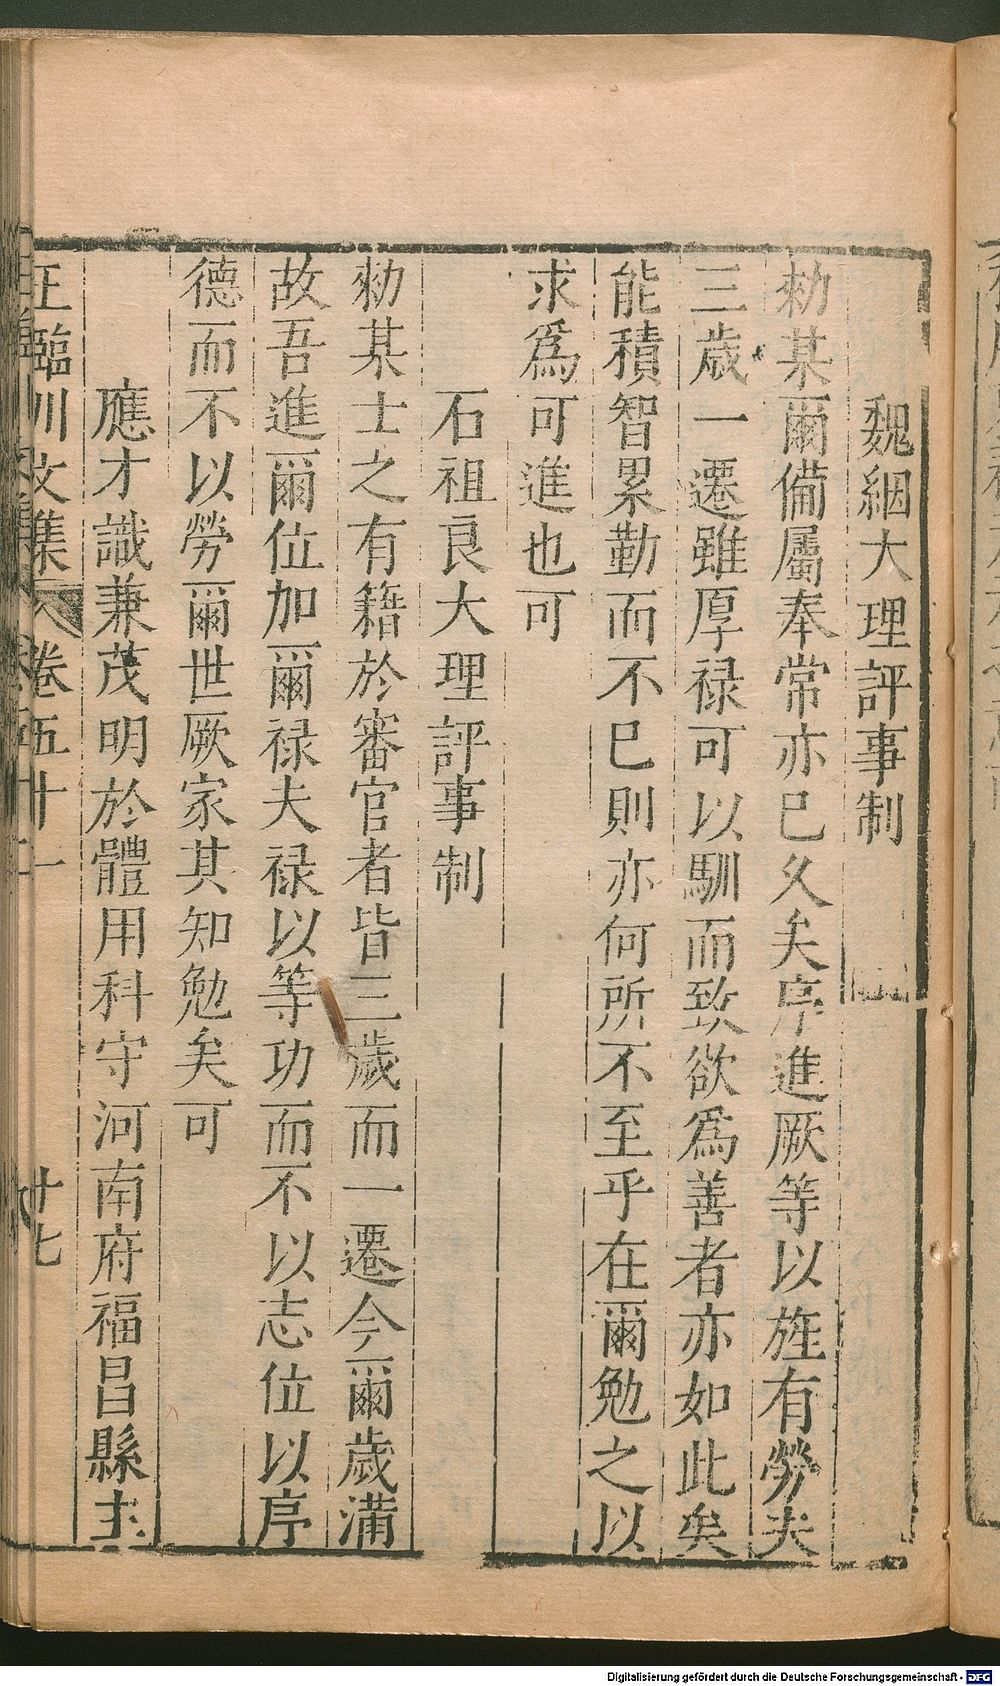 魏絪大理評事制
勑某爾備屬奉常亦巳久矣序進厥等以旌有勞夫
三歲一遷雖厚祿可以馴而致欲爲善者亦如此矣
能積智累勤而不巳則亦何所不至乎在爾勉之以
求爲可進也可
石祖良大理評事制
勑某士之有籍於審官者皆三歲而一遷今爾歲滿
故吾進爾位加爾祿夫祿以等功而不以志位以序
德而不以勞爾世厥家其知勉矣可
應才識兼茂明於體用科守河南府福昌縣主
王臨川文集 卷五十一 廿七
Digitalisierung gefördert durch die Deutsche Forschungsgemeinschaft - DFG